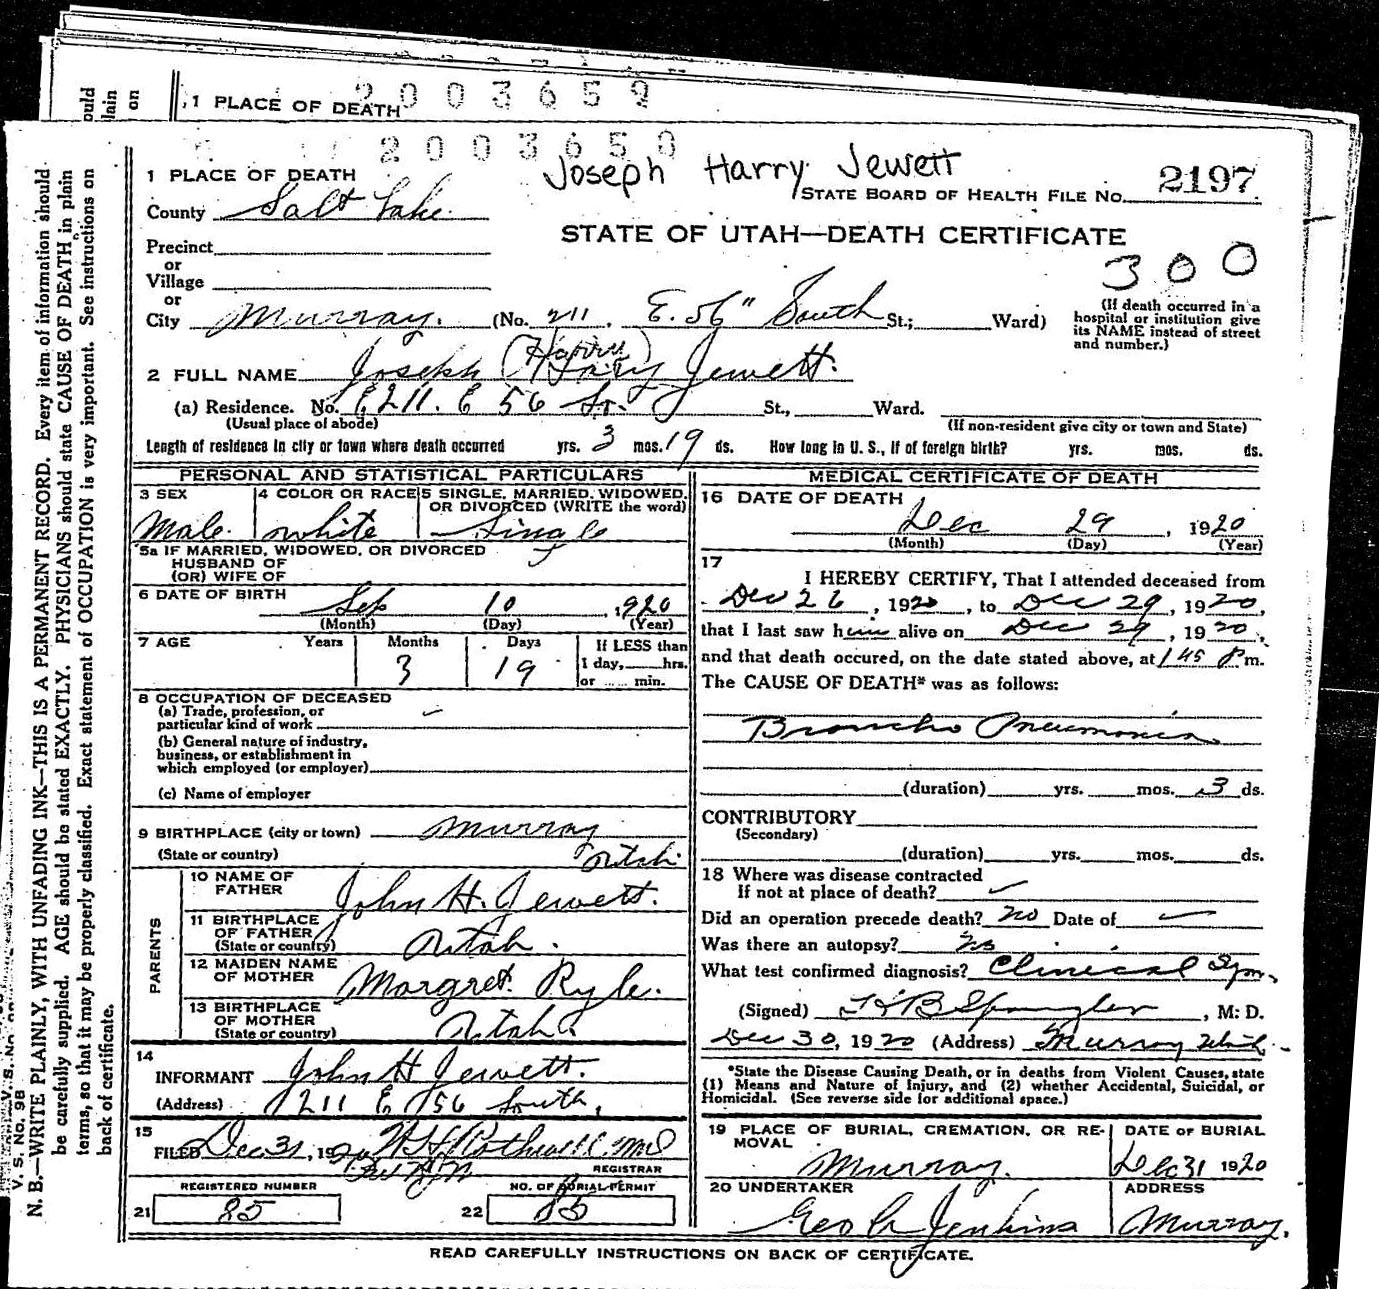 1 PLACE OF DEATH
2003659
2003659
Joseph Harry Jewett
1 PLACE OF DEATH
STATE BOARD OF HEALTH FILE No. 2197
County Salt Lake.
STATE OF UTAH—DEATH CERTIFICATE
Precinct
or
Village
or
300
(If death occurred in a
hospital or institution give
its NAME instead of street
and number.)
City Murray. (No. 211. E. 56" South St.; Ward)
2 FULL NAME Joseph (Harry) Jewett.
(a) Residence. No. 211. E 56 So. St., Ward.
(Usual place of abode)
(If non-resident give city or town and State)
Length of residence in city or town where death occurred yrs. 3 mos. 19 ds. How long in U. S., if of foreign birth? yrs. mos. ds.
PERSONAL AND STATISTICAL PARTICULARS
3 SEX
Male.
4 COLOR OR RACE
white
5 SINGLE, MARRIED, WIDOWED,
OR DIVORCED (WRITE the word)
Single
5a IF MARRIED, WIDOWED, OR DIVORCED
HUSBAND OF
(OR) WIFE OF
6 DATE OF BIRTH
Sep 10, 1920
(Month) (Day) (Year)
7 AGE Years Months Days If LESS than
3 19 1 day, hrs.
or min.
8 OCCUPATION OF DECEASED
(a) Trade, profession, or
particular kind of work
(b) General nature of industry,
business, or establishment in
which employed (or employer)
(c) Name of employer
9 BIRTHPLACE (city or town) Murray
(State or country) Utah
PARENTS
10 NAME OF
FATHER John H. Jewett.
11 BIRTHPLACE
OF FATHER
(State or country) Utah.
12 MAIDEN NAME
OF MOTHER Margret Ryle.
13 BIRTHPLACE
OF MOTHER
(State or country) Utah
14
INFORMANT John H Jewett.
(Address) 211 E 56 South,
15
FILED Dec 31, 1920 REGISTRAR
REGISTERED NUMBER
21 85
NO. OF BURIAL PERMIT
22 85
MEDICAL CERTIFICATE OF DEATH
16 DATE OF DEATH
Dec 29, 1920
(Month) (Day) (Year)
17
I HEREBY CERTIFY, That I attended deceased from
Dec 26, 1920, to Dec 29, 1920,
that I last saw him alive on Dec 29, 1920,
and that death occured, on the date stated above, at 1 45 P m.
The CAUSE OF DEATH* was as follows:
Broncho Pneumonia
(duration) yrs. mos. 3 ds.
CONTRIBUTORY
(Secondary)
(duration) yrs. mos. ds.
18 Where was disease contracted
If not at place of death?
Did an operation precede death? no Date of
Was there an autopsy? no
What test confirmed diagnosis? Clinical Sym.
(Signed) H B Spangler, M: D.
Dec 30, 1920 (Address) Murray Utah
*State the Disease Causing Death, or in deaths from Violent Causes, state
(1) Means and Nature of Injury, and (2) whether Accidental, Suicidal, or
Homicidal. (See reverse side for additional space.)
19 PLACE OF BURIAL, CREMATION, OR RE-
MOVAL
Murray.
DATE OF BURIAL
Dec 31 1920
20 UNDERTAKER
Geo Jenkins
ADDRESS
Murray.
READ CAREFULLY INSTRUCTIONS ON BACK OF CERTIFICATE.
V. S. No. 98
N. B.—WRITE PLAINLY, WITH UNFADING INK—THIS IS A PERMANENT RECORD. Every item of information should
be carefully supplied. AGE should be stated EXACTLY. PHYSICIANS should state CAUSE OF DEATH in plain
terms, so that it may be properly classified. Exact statement of OCCUPATION is very important. See instructions on
back of certificate.